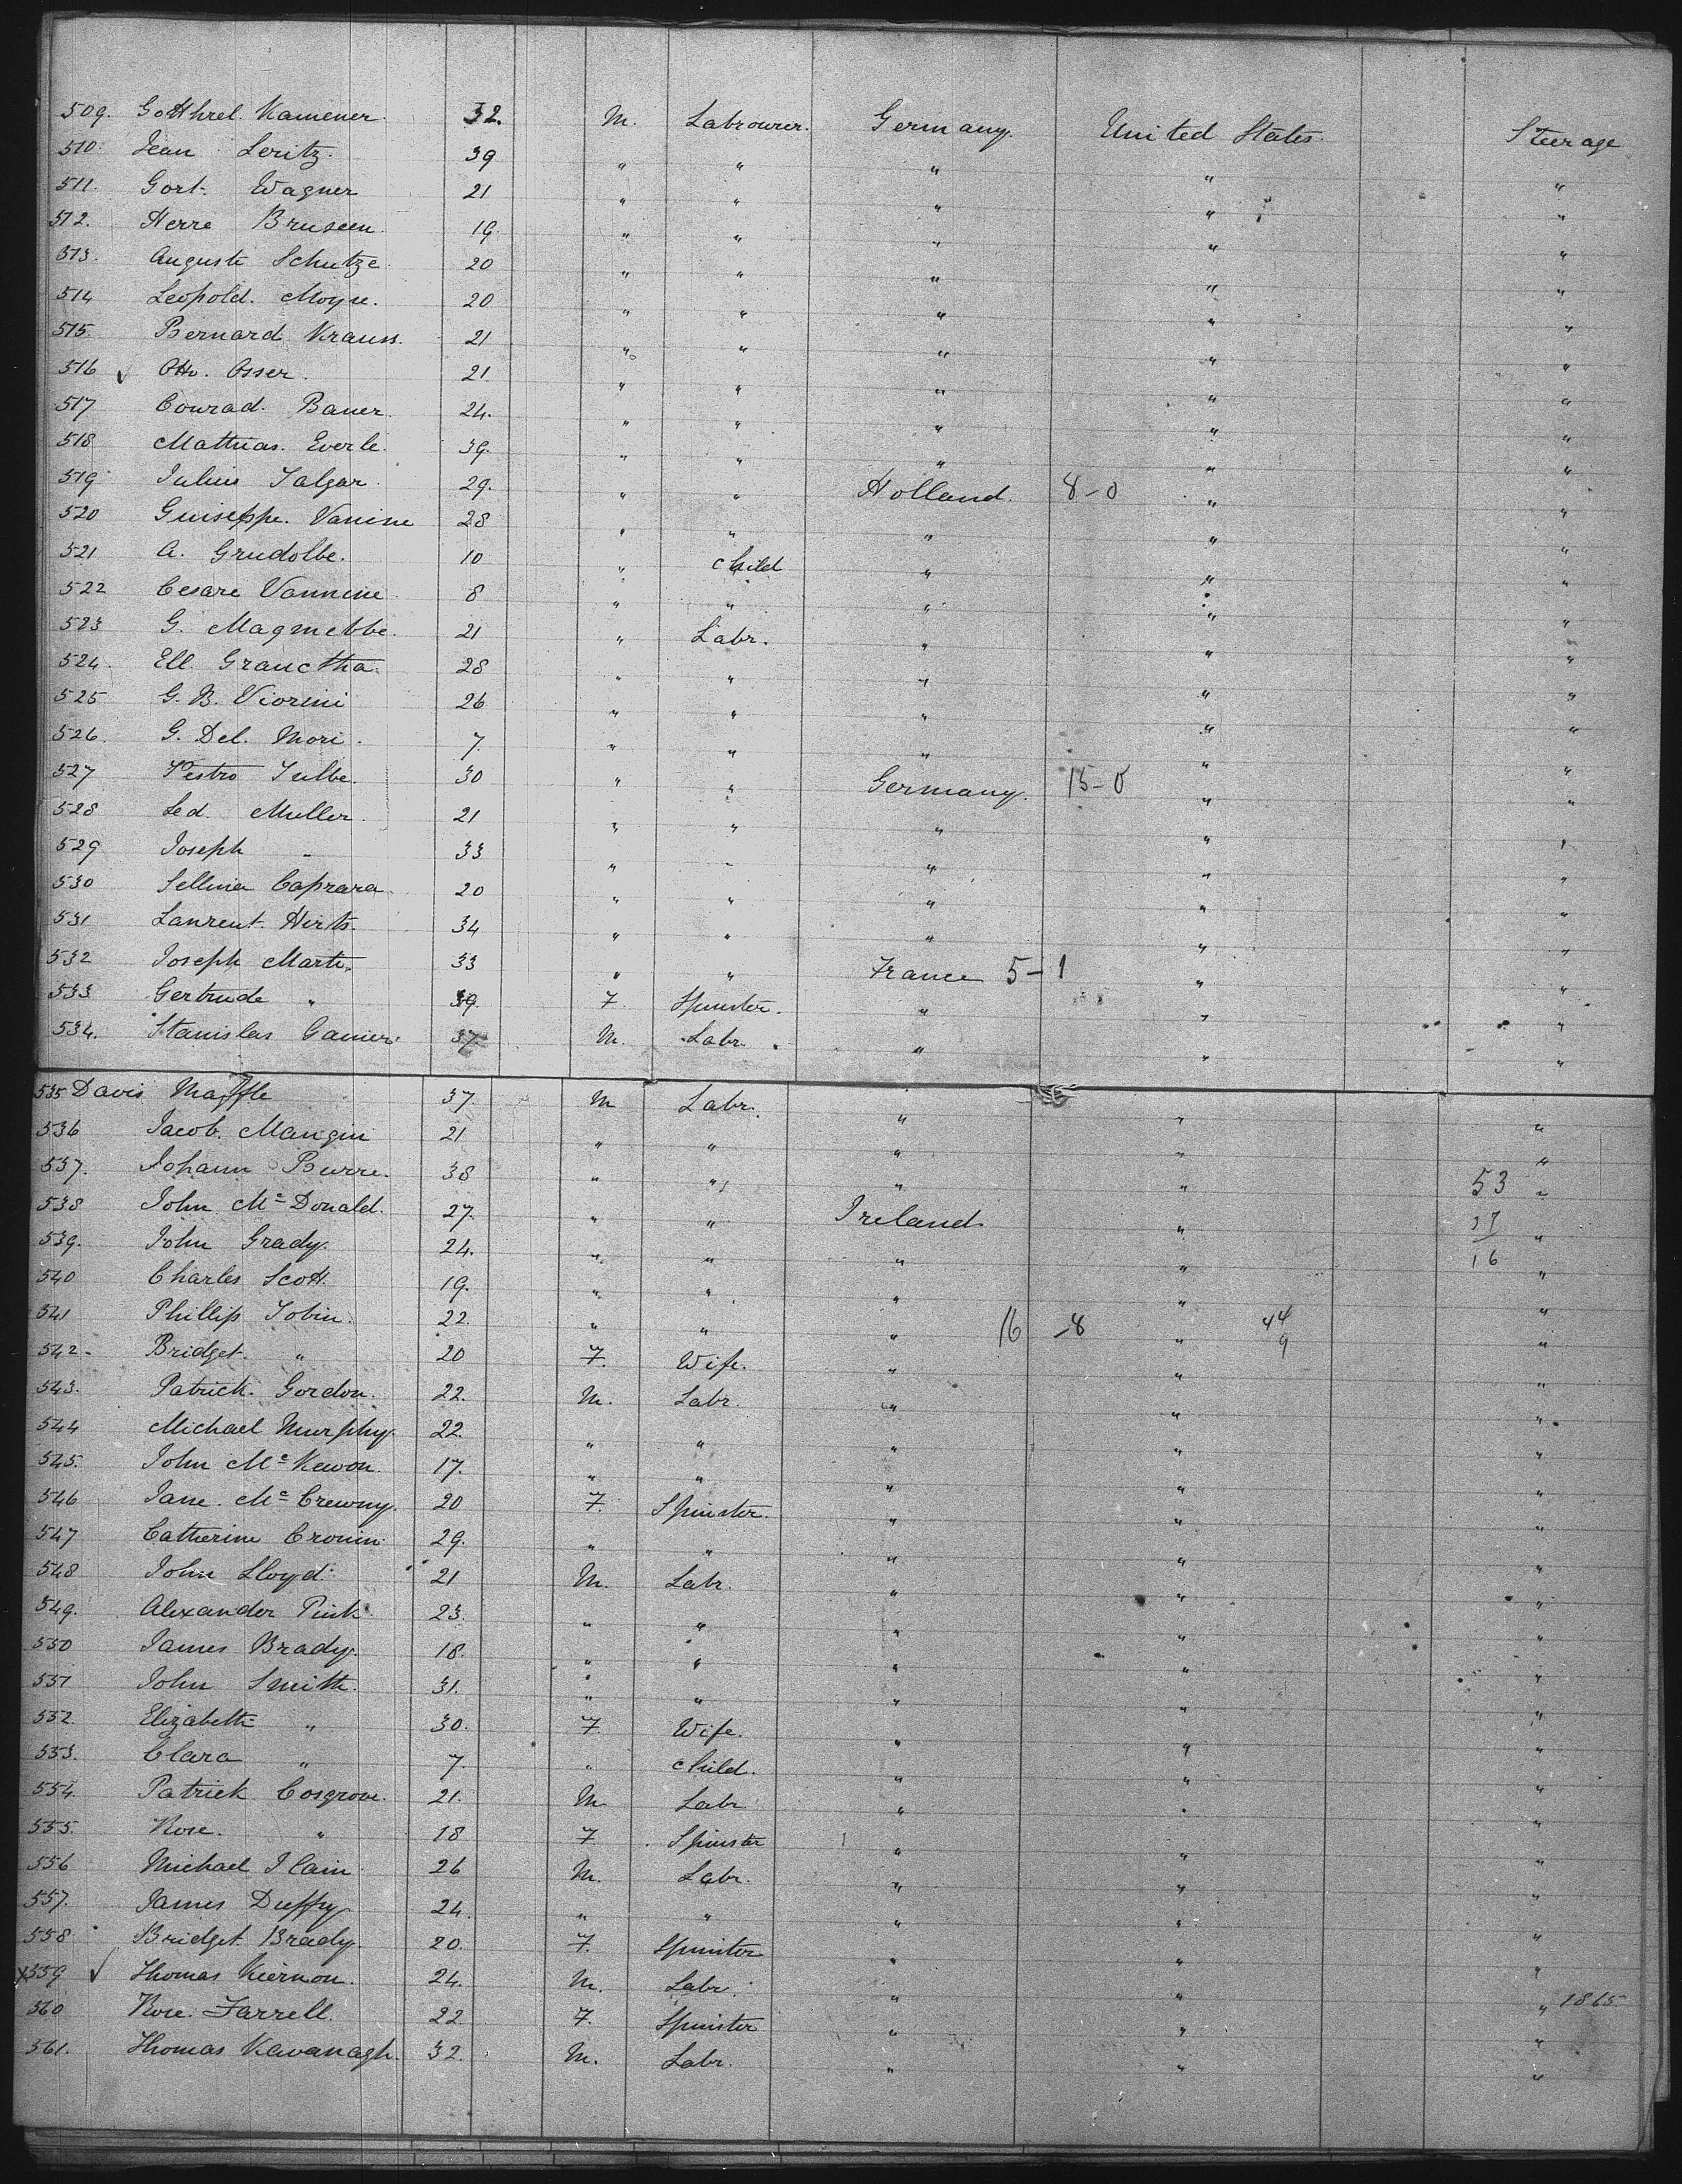 509. Gotthrel Kamener. 32. M. Labrourer. Germany. United States. Steerage
510. Jean Leritz. 39 " " " " "
511. Gort. Wagner 21 " " " " "
512. Herre Bruseen 19. " " " " "
513. Auguste Schutze. 20 " " " " "
514 Leopold. Moyse. 20 " " " " "
515. Bernard Krauss. 21 " " " " "
516 ✓ Otto. Osser. 21. " " " " "
517 Conrad. Bauer. 24. " " " " "
518 Mathias. Everle. 39. " " " " "
519 Julius Salgar. 29. " " Holland. 8-0 " "
520 Guiseppe. Vanine 28 " " " " "
521 A. Grudolbe. 10 " child " " "
522 Cesare Vannine 8 " " " " "
523 G. Magnebbe. 21 " Labr. " " "
524. Ell. Granctha. 28 " " " " "
525 G. B. Viorini 26 " " " " "
526. G. Del. Mori. 7. " " " " "
527 Pestro Julbe. 30 " " Germany. 15-0 " "
528 Led. Muller. 21 " " " " "
529 Joseph " 33 " " " " "
530 Sellina Caprara 20 " " " " "
531 Laurent. Hirts. 34 " " " " "
532 Joseph Marti. 33 " " France 5-1 " "
533 Gertrude " 39. F Spinster. " " "
534. Stanislas Ganier. 37. M. Labr. " " "
535 Davis Maffle 37. M Labr. " " "
536 Jacob. Mangin 21 " " " " "
537. Johann Burre. 38 " " " " 53 "
538 John Mc Donald. 27. " " Ireland. " 37 "
539. John Grady. 24. " " " " 16 "
540 Charles Scott. 19. " " " " "
541 Phillip Tobin. 22. " " " 16 -8 " 44 9 "
542. Bridget. " 20 F. Wife. " " "
543. Patrick. Gordon. 22. M. Labr. " " "
544 Michael Murphy. 22. " " " " "
545. John Mc Kewon. 17. " " " " "
546 Jane. Mc Crewny. 20 F. Spinster. " " "
547 Catherine Cronin. 29. " " " " "
548 John Lloyd. 21 M. Labr. " " "
549. Alexander Pink. 23. " " " " "
550 James Brady. 18. " " " " "
551 John Smith. 31. " " " " "
552. Elizabeth " 30. F. Wife. " " "
553. Clara " 7. " child. " " "
554. Patrick Cosgrove. 21. M Labr " " "
555. Rose. " 18 F Spinster " " "
556 Michael Ilain 26 M. Labr. " " "
557. James Duffy 24. " " " " "
558 Bridget. Brady. 20. F. Spinster " " "
x559 ✓ Thomas Kiernon. 24. M. Labr. " " "
560 Rose. Farrell. 22 F. Spinster " " " 1865
561. Thomas Kavanagh. 32. M. Labr. " " "